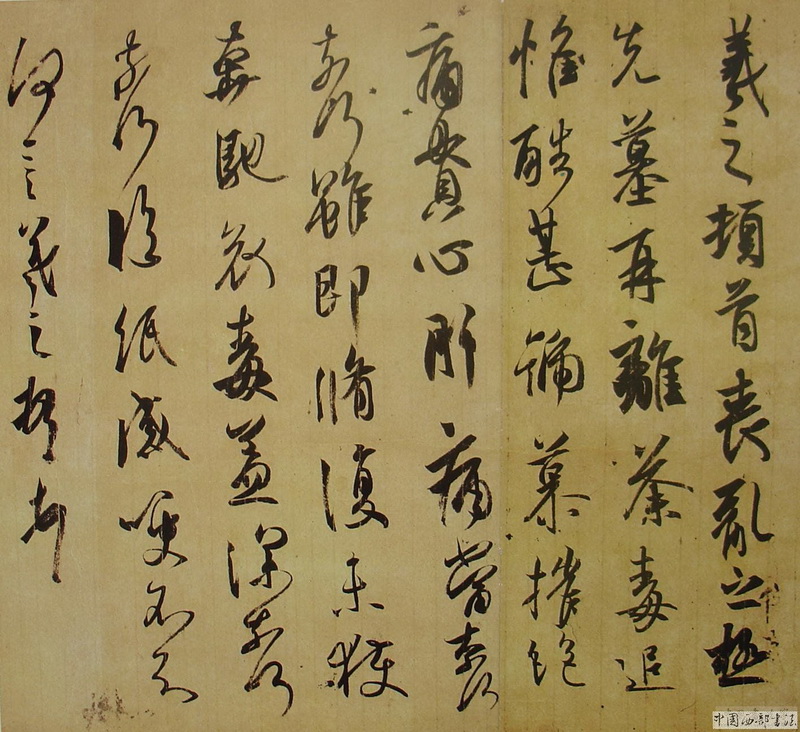 羲之頓首喪亂之極
先墓再離荼毒追
惟酷甚號慕摧絕
痛貫心肝痛當奈何
奈何雖即脩復未獲
奔馳哀毒益深奈何
奈何臨紙感哽不知
何言羲之頓首頓首
中国西部書法